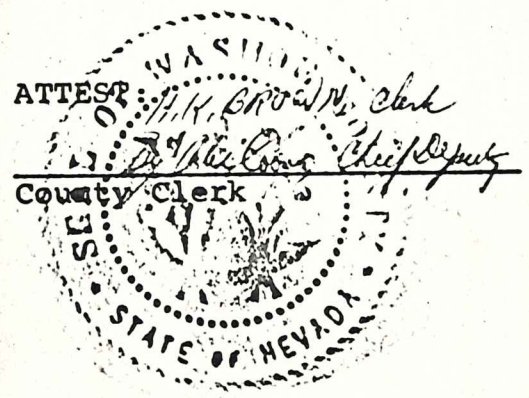 ATTEST: H.K. BROWN, Clerk
Chief Deputy
County Clerk
SE OF WASHO
STATE OF NEVADA